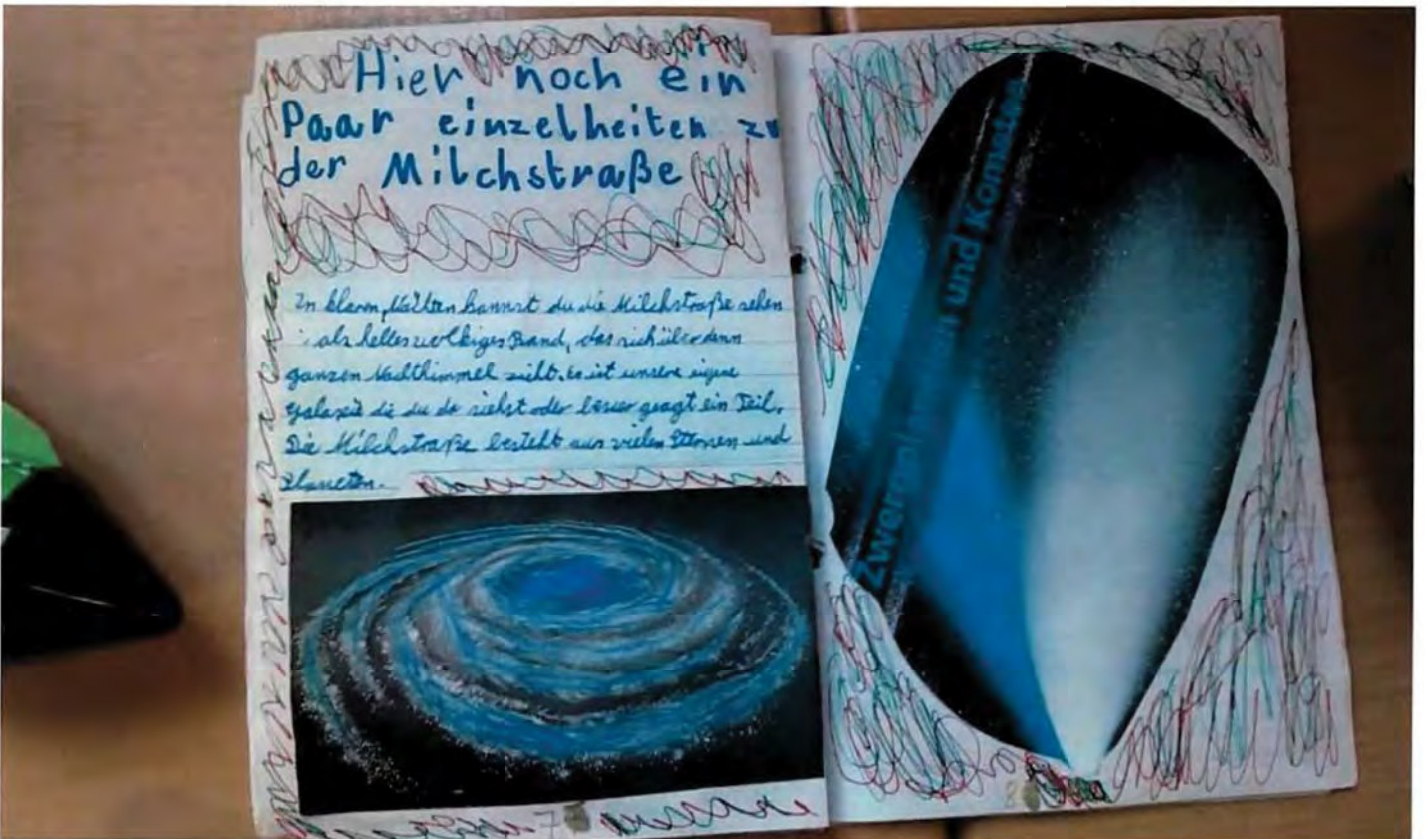 Hier noch ein
Paar einzelheiten zu
der Milchstraße
In klaren Nächten kannst du die Milchstraße sehen
als helles wolkiges Band, das sich über denn
ganzen Nachthimmel zieht. Es ist unsere eigene
galaxie die du da siehst oder besser gesagt ein Teil.
Die Milchstraße besteht aus vielen Sternen und
Planeten.
7
und Kometen
8